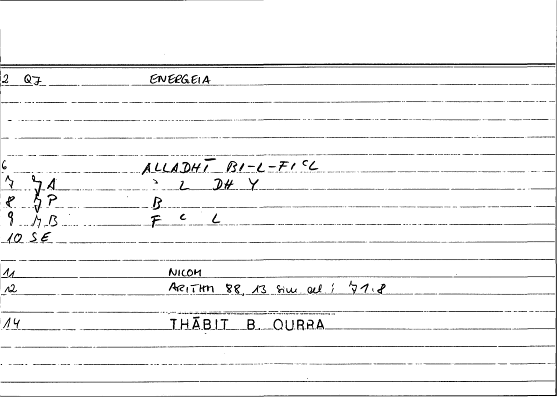 2 Q7 ENERGEIA
6 ALLADHĪ BI-L-FIᶜL
7 A ʾ L DH Y
8 P B
9 B F ᶜ L
10 SE
11 NICOM
12 ARITHM 88, 13 sim al : 71.8
14 THĀBIT B. QURRA